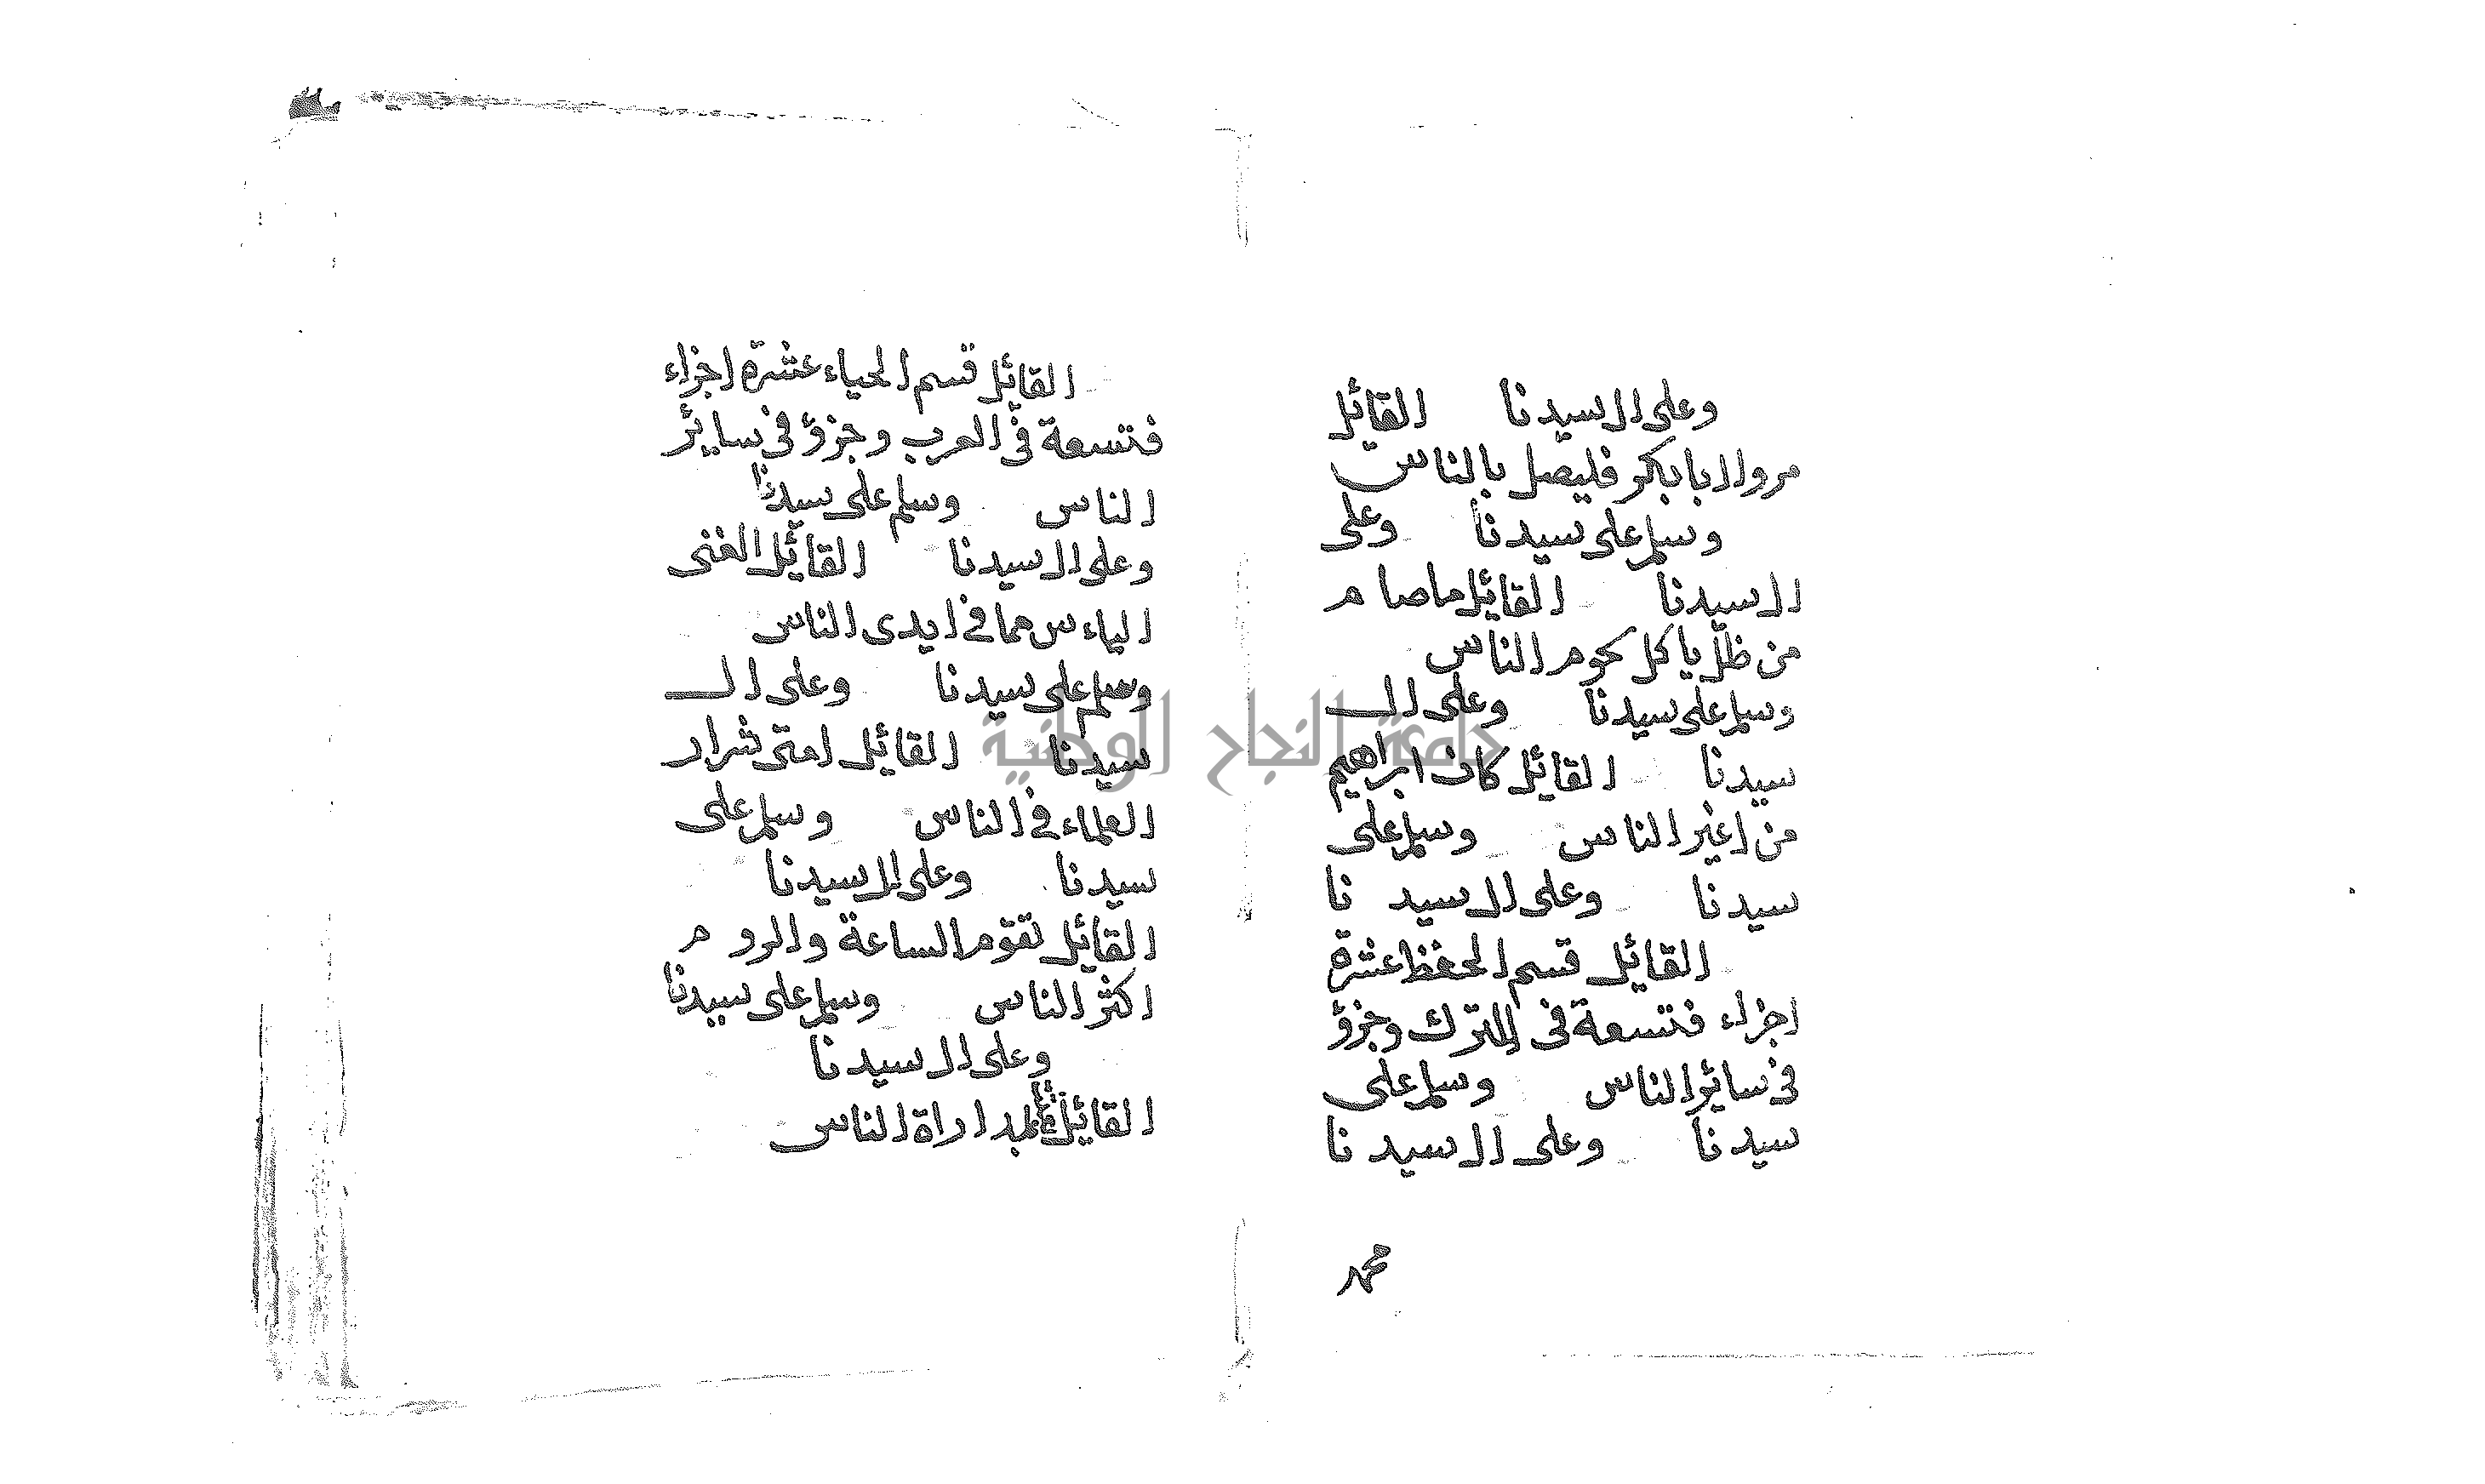 وعلى ال سيدنا القائل
مروا ابا بكر فليصل بالناس
وسلم على سيدنا وعلى
ال سيدنا القائل ما صام
من ظل ياكل لحوم الناس
وسلم على سيدنا وعلى ال
سيدنا القائل كان ابراهيم
من اغير الناس وسلم على
سيدنا وعلى ال سيدنا
القائل قسم الحفظ عشرة
اجزاء فتسعة في الترك وجزؤ
في سائر الناس وسلم على
سيدنا وعلى ال سيدنا
محمد
القائل قسم الحياء عشرة اجزاء
فتسعة في العرب وجزؤ في سائر
الناس وسلم على سيدنا
وعلى ال سيدنا القائل الغنى
الياءس مما في ايدى الناس
وسلم على سيدنا وعلى ال
سيدنا القائل امتى شرار
العلماء في الناس وسلم على
سيدنا وعلى ال سيدنا
القائل تقوم الساعة والروم
اكثر الناس وسلم على سيدنا
وعلى ال سيدنا
القائل بمداراة الناس
جامعة النجاح الوطنية